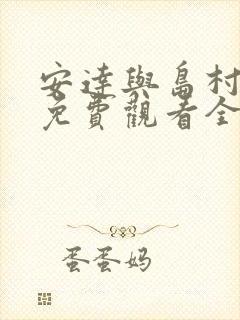 安達與島村
免費觀看全
蛋蛋妈